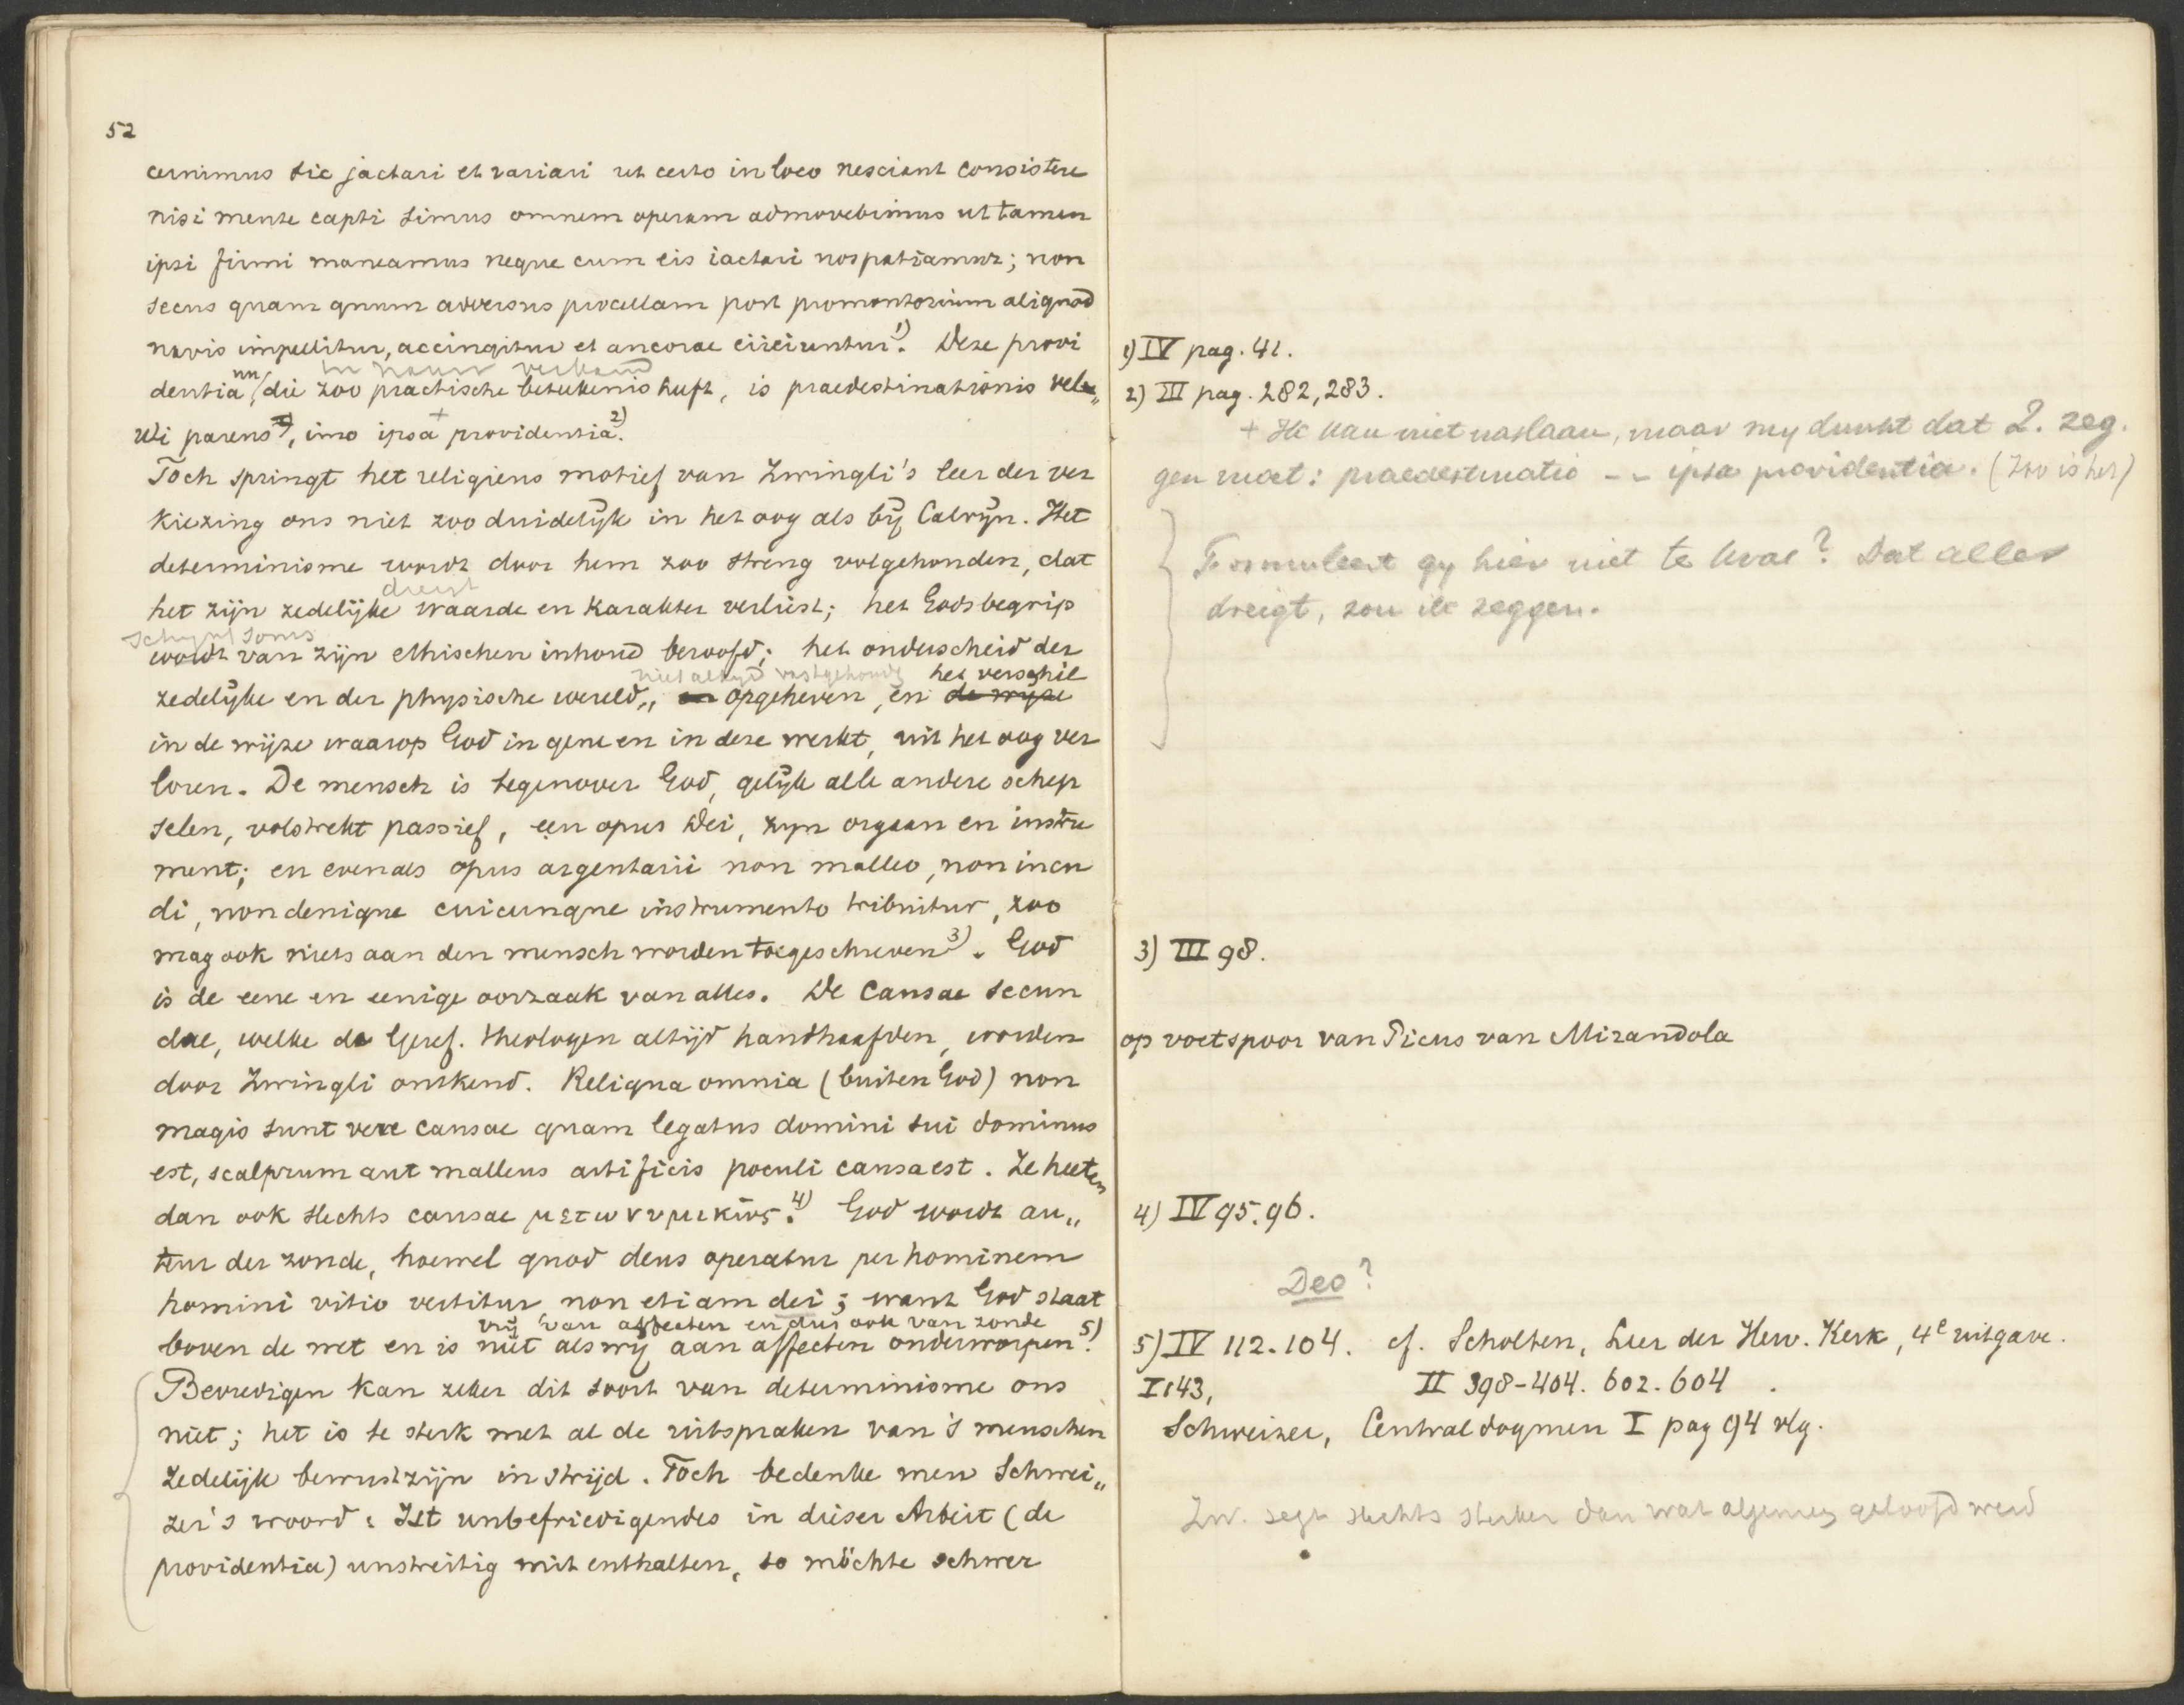 52
cernimus sic jactari et variari ut certo in loco nesciant consistere
nisi mente capti simus omnem operam admovebimus ut tamen
ipsi firmi maneamus neque cum eis iactari nos patiamur; non
secus quam quum adversus procellam post promontorium aliquod
navis impellitur, accingitur et ancorae eiiciuntur 1). Deze provi
in nauw verband
dentia nu, die zoo practische beteekenis heeft, is praedestinationis vel„
uti parens, imo ipsa + providentia 2).
Toch springt het religieus motief van Zwingli's leer der ver
kiezing ons niet zoo duidelijk in het oog als bij Calvijn. Het
determinisme wordt door hem zoo streng volgehouden, dat
dreigt
het zijn zedelijke waarde en karakter verliest; het Godsbegrip
schijnt soms
wordt van zijn ethischen inhoud beroofd; het onderscheid der
niet altijd vastgehouden het verschil
zedelijke en der physische wereld„ en opgeheven, en de wijze
in de wijze waarop God in gene en in deze werkt, uit het oog ver
loren. De mensch is tegenover God, gelijk alle andere schep
selen, volstrekt passief, een opus Dei, zijn orgaan en instru
ment; en evenals opus argentarii non malleo, non incu
di, non denique cuicunque instrumento tribuitur, zoo
mag ook niets aan den mensch worden toegeschreven 3). God
is de eene en eenige oorzaak van alles. De causae secun
dae, welke de Geref. theologen altijd handhaafden, worden
door Zwingli ontkend. Reliqua omnia (buiten God) non
magis sunt vere causae quam legatus domini sui dominus
est, scalprum aut malleus artificis poculi causa est. Ze heeten
dan ook slechts causae μετωνυμικῶς 4). God wordt au„
teur der zonde, hoewel quod deus operatur per hominem
homini vitio vertitur, non etiam dei; want God staat
vrij van affecten en dus ook van zonde
boven de wet en is niet als wij aan affecten onderworpen 5).
Bevredigen kan zeker dit soort van determinisme ons
niet; het is te sterk met al de uitspraken van 's menschen
zedelijk bewustzijn in strijd. Toch bedenke men Schwei„
zer's woord: Ist unbefriedigendes in dieser Arbeit (de
providentia) unstreitig mit enthalten, so möchte schwer
1) IV pag. 41.
2) III pag. 282, 283.
+ Ik kan niet naslaan, maar my dunkt dat Z. zeg.
gen moet: praedestinatio -- ipsa providentia. (Zoo is het)
Formuleert gy hier niet te kras? Dat alles
dreigt, zou ik zeggen.
3) III 98.
op voetspoor van Picus van Mirandola
4) IV 95.96.
Deo?
5) IV 112.104. cf. Scholten, Leer der Herv. Kerk, 4e uitgave.
I 143, II 398-404. 602.604.
Schweizer, Centraldogmen I pag 94 vlg.
Zw. zegt slechts sterker dan wat algemeen geloofd werd